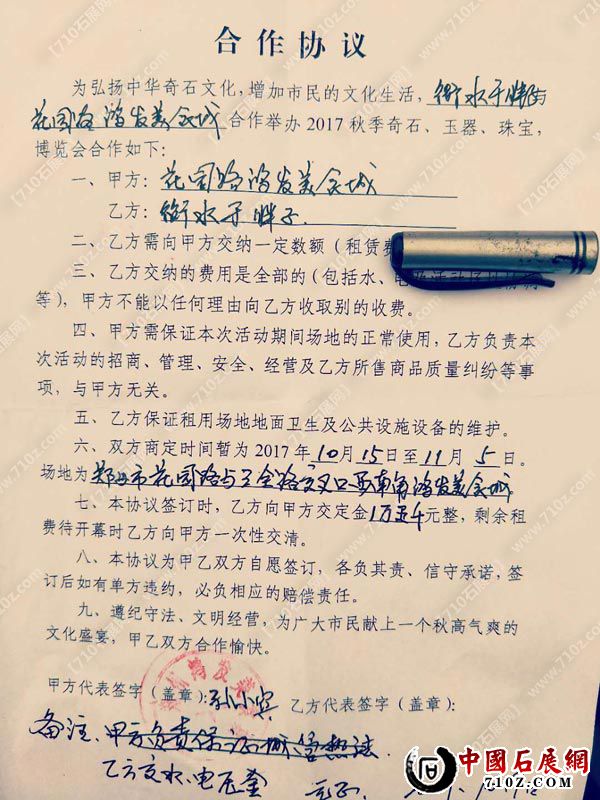 合作协议
为弘扬中华奇石文化，增加市民的文化生活，衡水于胖子与
花园路鸿发美食城合作举办 2017 秋季奇石、玉器、珠宝，
博览会合作如下：
一、甲方：花园路鸿发美食城
乙方：衡水于胖子
二、乙方需向甲方交纳一定数额（租赁费
三、乙方交纳的费用是全部的（包括水、
等），甲方不能以任何理由向乙方收取别的收费。
四、甲方需保证本次活动期间场地的正常使用，乙方负责本
次活动的招商、管理、安全、经营及乙方所售商品质量纠纷等事
项，与甲方无关。
五、乙方保证租用场地地面卫生及公共设施设备的维护。
六、双方商定时间暂为 2017 年 10 月 15 日至 11 月 5 日。
场地为郑州市花园路与三全路交叉口西南角鸿发美食城
七、本协议签订时，乙方向甲方交定金1万五千元整，剩余租
费待开幕时乙方向甲方一次性交清。
八、本协议为甲乙双方自愿签订，各负其责、信守承诺，签
订后如有单方违约，必负相应的赔偿责任。
九、遵纪守法、文明经营，为广大市民献上一个秋高气爽的
文化盛宴，甲乙双方合作愉快。
甲方代表签字（盖章）：孙小宾 乙方代表签字（盖章）：
备注、甲方负责保
乙方交水、电
中國石展網
710z.COM
【710石展网】
www.710z.com